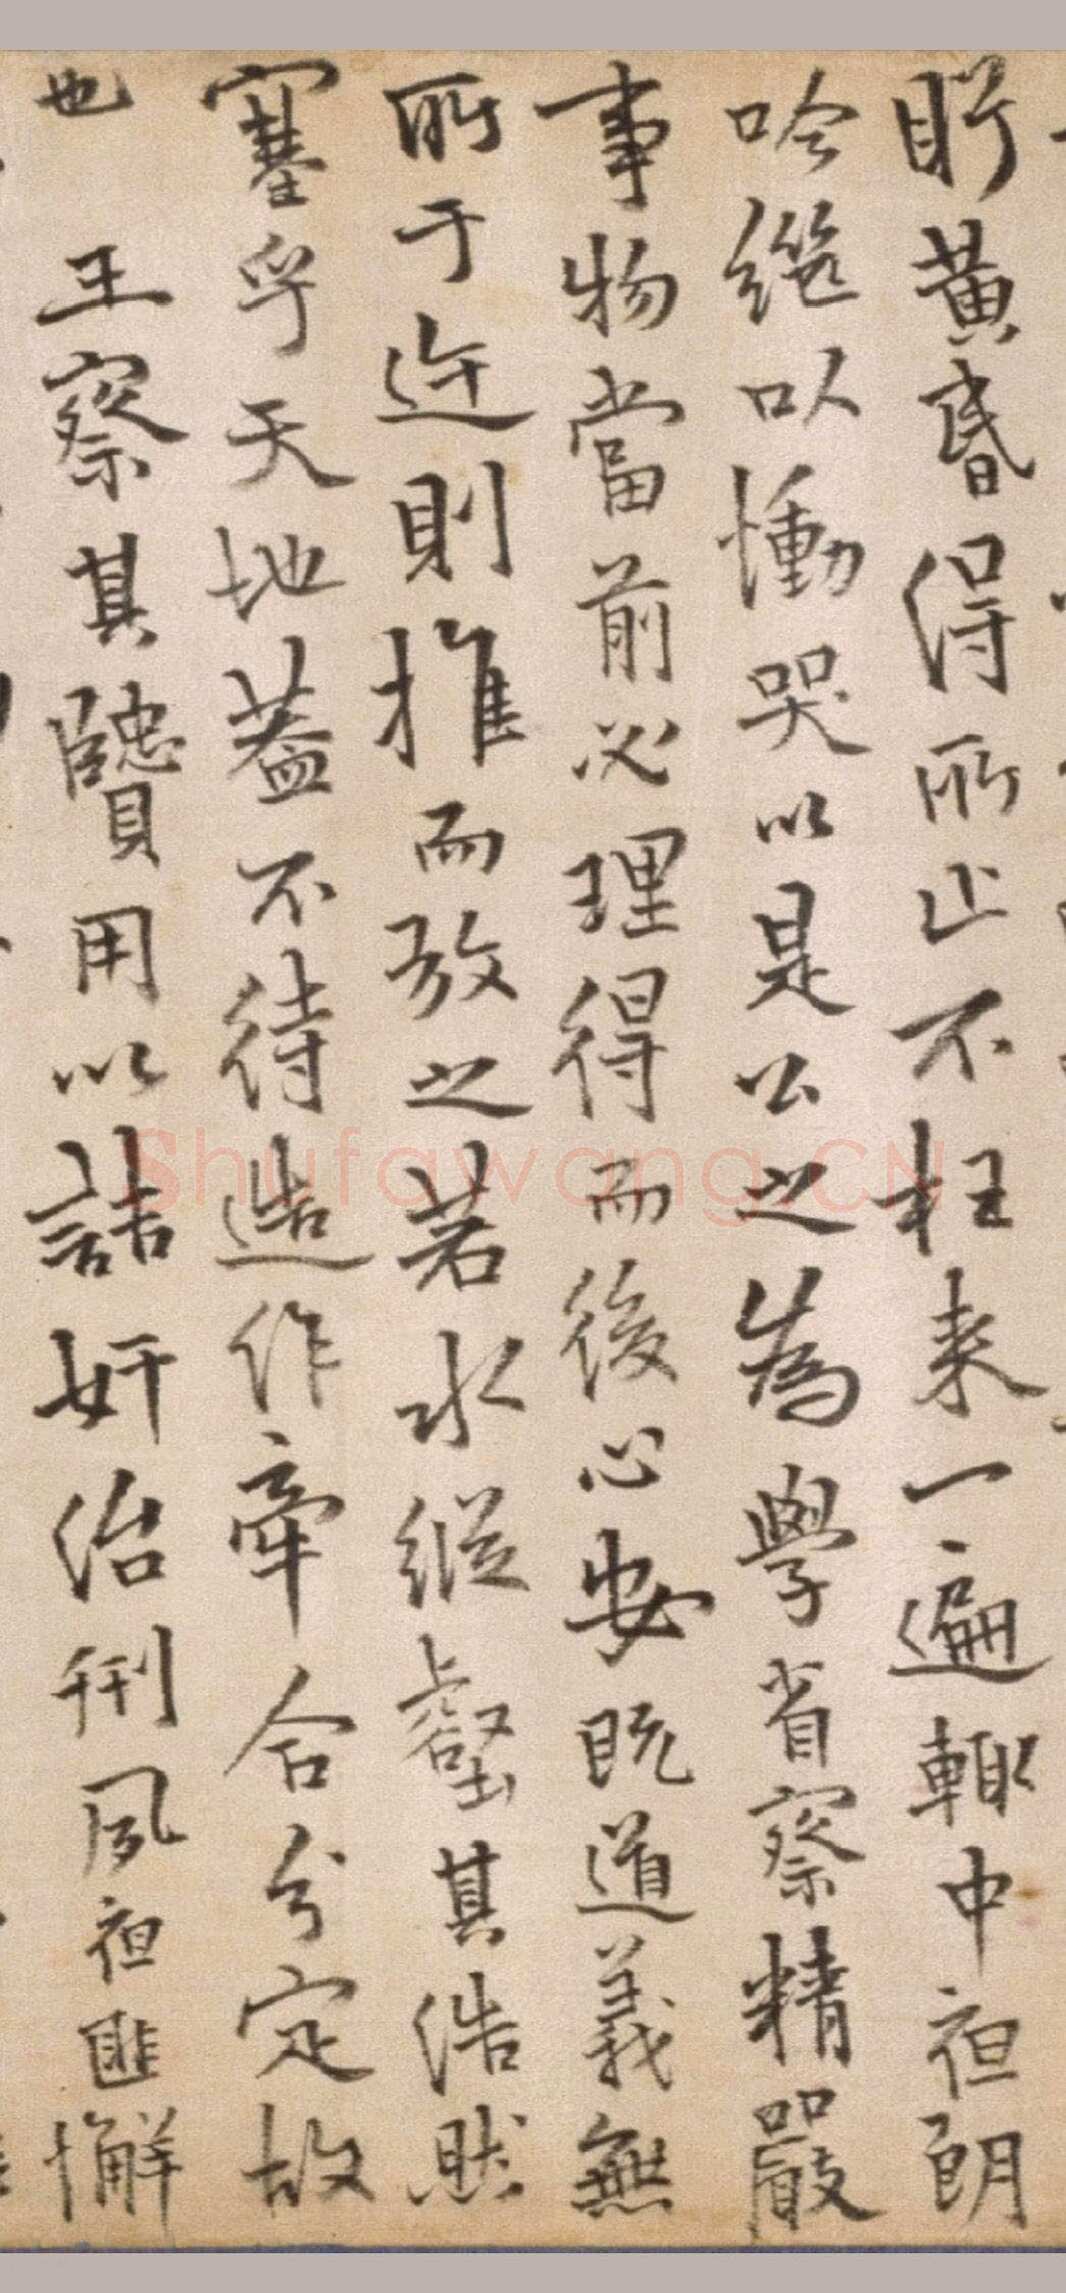 盱黃昏得所止不枉来一遍輙中夜朗
吟繼以慟哭以是公之為學省察精嚴
事物當前必理得而後心安既道義無
所于迕則推而放之若水縱壑其浩然
塞乎天地蓋不待造作牽合分定故
也王察其聽用以詰奸治刑夙夜匪懈
Shufawang.CN